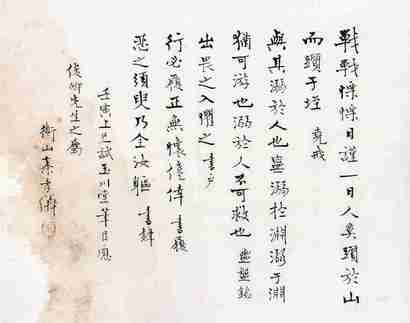 戰戰慄慄日謹一日人莫躓於山
而躓于垤 堯戒
與其溺於人也寧溺於淵溺于淵
猶可游也溺於人不可救也 盥盤銘
出畏之入懼之 書戶
行必履正無懷僥倖 書履
忍之須臾乃全汝軀 書鋒
壬寅上巳試玉川堂筆日應
俊卿先生之屬
衡山秦孝儀